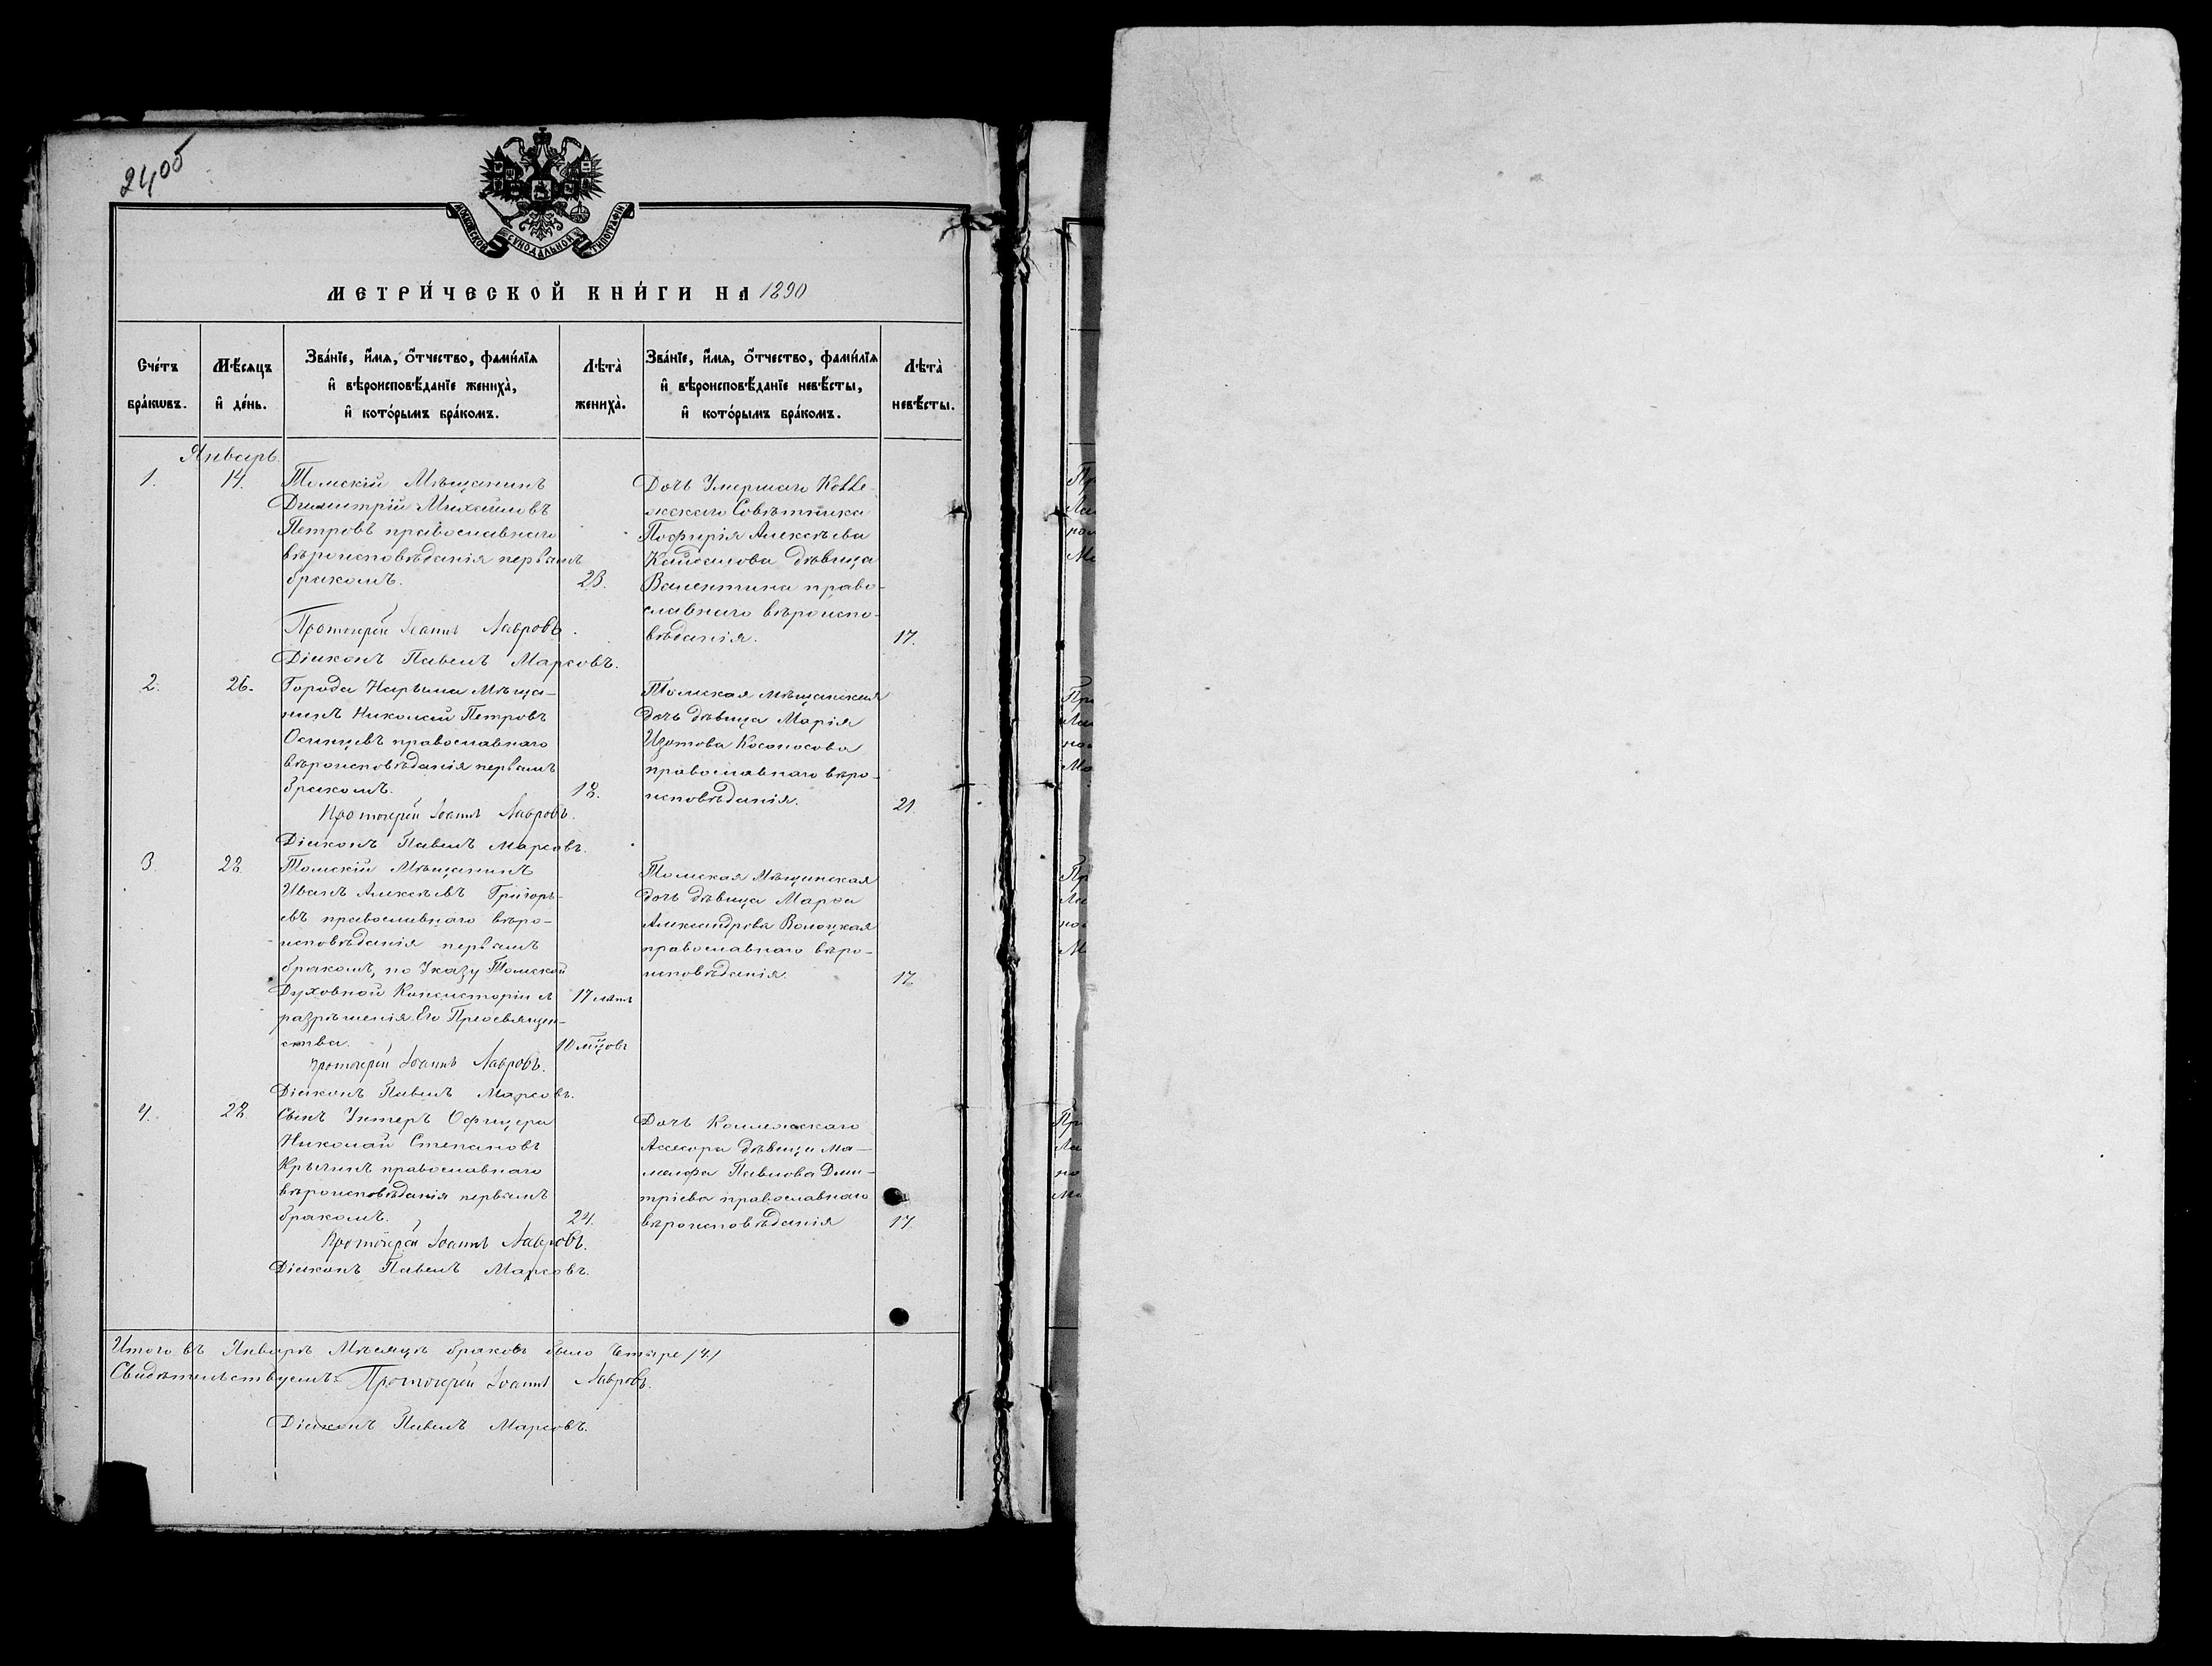 2400
МОСКОВСКОЙ СѴНОДАЛЬНОЙ ТИПОГРАФІИ
МЕТРИ́ЧЕСКОЙ КНИ́ГИ НА 1890
Сче́тъ бра́кѡвъ.
Мѣ́сяцъ и҆ де́нь.
Зва́нїе, и҆́мѧ, ѻ҆́тчество, фами́лїѧ
и҆ вѣроисповѣ́данїе жениха̀,
и҆ кото́рымъ бра́комъ.
Лѣта̀ жениха̀.
Зва́нїе, и҆́мѧ, ѻ҆́тчество, фами́лїѧ
и҆ вѣроисповѣ́данїе невѣ́сты,
и҆ кото́рымъ бра́комъ.
Лѣта̀ невѣ́сты.
Январь.
1.
14.
Томскій Мѣщанинъ
Димитрій Михайловъ
Петровъ православнаго
вѣроисповѣданія первымъ
бракомъ.
23.
Протоіерей Іоаннъ Лавровъ.
Діаконъ Павелъ Марсовъ.
Дочь Умершаго Колле-
жскаго Совѣтника
Порфирія Алексѣева
Кайдалова дѣвица
Валентина право-
славнаго вѣроиспо-
вѣданія.
17.
2.
26.
Города Нарыма Мѣща-
нинъ Николай Петровъ
Осипцевъ православнаго
вѣроисповѣданія первымъ
бракомъ.
18.
Протоіерей Іоаннъ Лавровъ.
Діаконъ Павелъ Марсовъ.
Томская Мѣщанская
дочь дѣвица Марія
Изотова Косоносова
православнаго вѣро-
исповѣданія.
21.
3.
28.
Томскій Мѣщанинъ
Иванъ Алексѣевъ Григорь-
евъ православнаго вѣро-
исповѣданія первымъ
бракомъ, по Указу Томской
Духовной Консисторіи съ
разрѣшенія Его Преосвящен-
ства.
17 лѣтъ
10 мцовъ
Протоіерей Іоаннъ Лавровъ.
Діаконъ Павелъ Марсовъ.
Томская Мѣщанская
дочь дѣвица Марѳа
Александрова Волоцкая
православнаго вѣро-
исповѣданія.
17.
4.
28.
Сынъ Унтеръ Офицера
Николай Степановъ
православнаго
вѣроисповѣданія первымъ
бракомъ.
24.
Протоіерей Іоаннъ Лавровъ.
Діаконъ Павелъ Марсовъ.
Дочь Коллежскаго
Ассесора дѣвица Ма-
мелфа Павлова Дми-
тріева православнаго
вѣроисповѣданія
17.
Итого въ Январѣ Мѣсяцѣ браковъ было Четыре /4/
Свидѣтельствуемъ: Протоіерей Іоаннъ Лавровъ.
Діаконъ Павелъ Марсовъ.